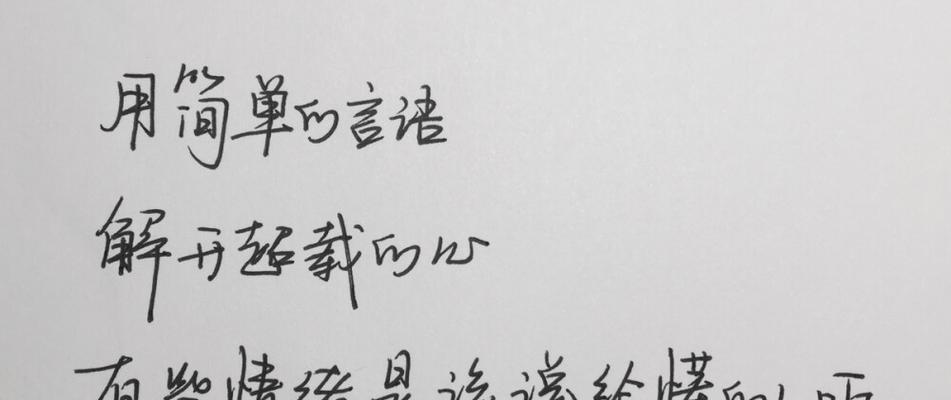 用简单的言语
解开超载的心
有些情绪是该说给懂的人听